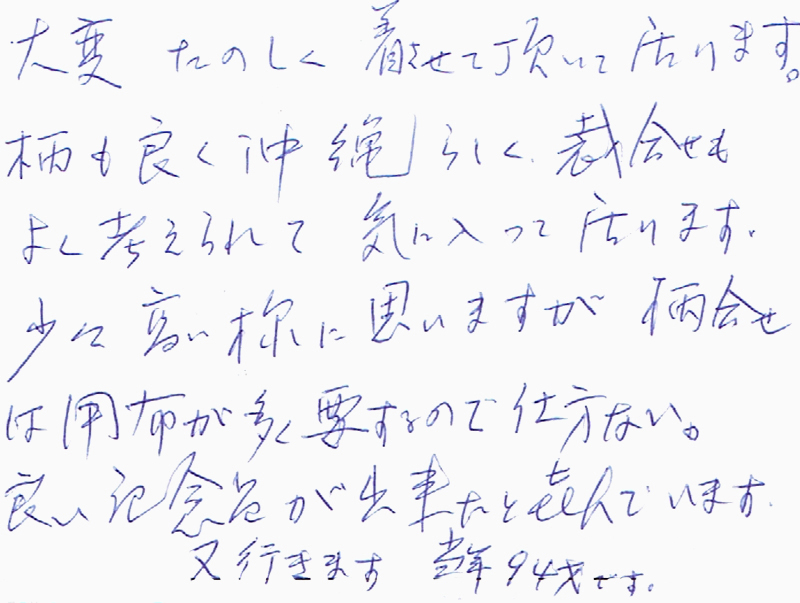 大変 たのしく 着させて頂いて居ります。
柄も良く沖縄らしく、裁合せも
よく考えられて 気に入って居ります。
少々高い様に思いますが 柄合せ
は用布が多く要するので仕方ない。
良い記念品が出来たと喜んでいます。
又行きます 当年94才です。